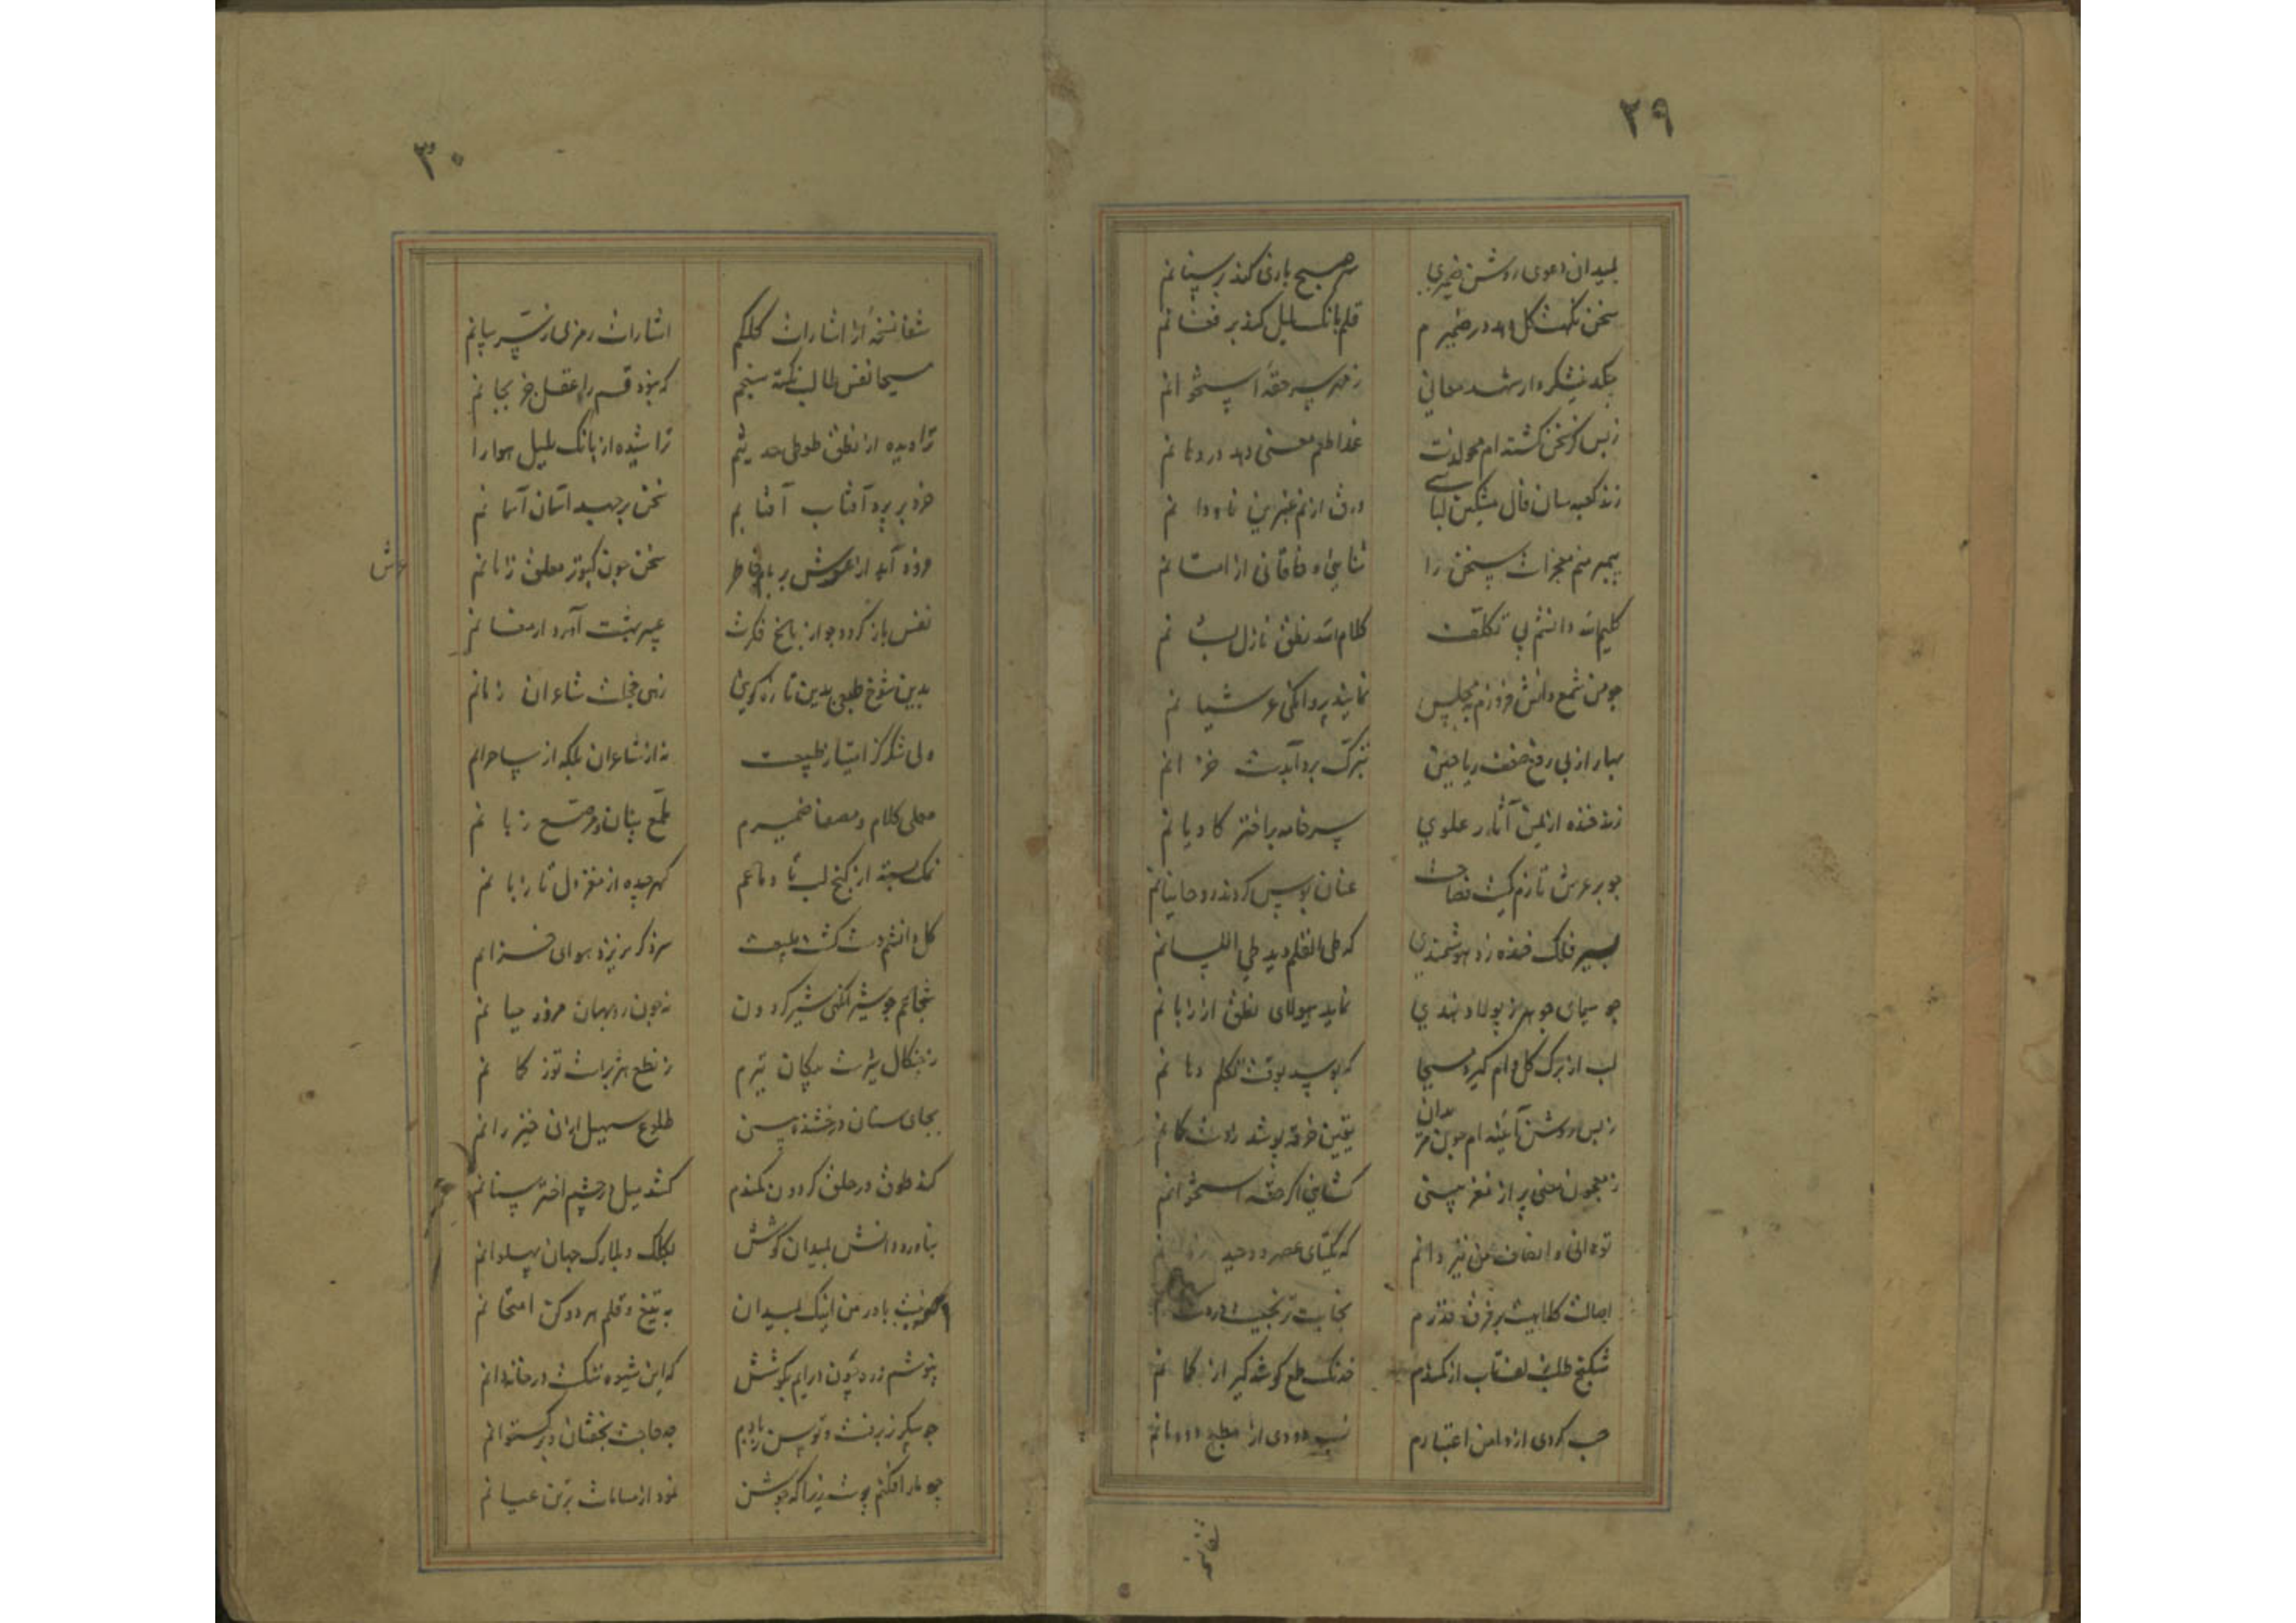 ۲۹
بمیدان دعوی روشن ضمیری سر صبح بازی کند بر سنانم
سخن نکهت گل دهد در ضمیرم قلم بانک بلبل کند بر فشانم
چکد نیشکروار شهد معانی ز هر سر حقهٔ استخوانم
ز بس کز سخن گشته ام محو لذت غذا طعم معنی دهد در دهانم
زند کعبه سان فال مشکین لباسی ورق از نم عنبرین
پیمبر منم معجزات سخن را ثنایی و خاقانی از امتانم
کلیم الله دانشم بی تکلف کلام الله نطق نازل بشانم
چو من شمع دانش فروزم بمجلس نمایند پروانگی عرشیانم
بهار از پی رفع ضعف ریاحین تبرک برد آبدست خزانم
زند خنده از یمن آثار علوی سر خامه بر اختر کاویانم
چو بر عرش تازم کمیت فصاحت عنان بوس کردند روحانیانم
بپیر فلک خنده زد هوشمندی که طی القلم دید طی اللسانم
چو سیمای جوهر ز پولاد هندی نماید هیولای نطق از زبانم
لب از برگ گل وام گیرد مسیحا که بوسد بوقت تکلم دهانم
ز بس روشن آئینه ام چون بدان یقین خرقه پوشد ز دست گمانم
ز معجون معنی پر از مغز بینی گشایی اگر حقهٔ استخوانم
تو دانی و انصاف من نیز دانم که یکتای عصر و وحید
اصالت کلاهیست بر فرق قدرم نجابت
شکنج طلب لعنتاب از کمندم خدنگ طمع گوشه گیر از کمانم
حسب گردی از دامن اعتبارم نسب دودی از مطبخ دودمانم
شفا نسخه
۳۰
شفا نسخهٔ از اشارات کلکم اشارات رمزی ز سر بیانم
مسیحا نفس طالب نکته سنجم که بیند قسم را عقل جز بجانم
تراویده از نطق طوطی حدیثم تراشیده از بانگ بلبل
خرد بر پرد آفتاب آفتابم سخن بر جهد آسمان آسمانم
فرود آید از عرش بر بام خاطر سخن چون کبوتر معلق زنانم
عرش
نفس باز گردد چو از باغ فکرت عبیر بهشت آورد ارمغانم
بدین شوخ طبعی بدین تازه گویی زهی خجلت شاعران زمانم
ولی شکر کز امتیاز طبیعت نه از شاعران بلکه از ساحرانم
محلی کلام و مصفا ضمیرم ملمع بنان و مرصع زبانم
نمک بسته از کنج لب تا دماغم گهر چیده از مغز دل تا زبانم
گل دانشم دست گشت طبیعت سزد گر بریزد هوای خزانم
شجاعم چو شیرافکنی شیر گردون نه چون روبهان مزور حیانم
ز چنگال شیرست پیکان تیرم ز نطع هژبرست توز کمانم
بجای سنان درخشنده بینی طلوع سهیل از نی خیزرانم
کند طوق در حلق گردون کمندم کشد میل در چشم اختر سنانم
بناورد دانش بمیدان کوشش بکلک و بلارک جهان پهلوانم
گرت نیست باور من اینک بمیدان به تیغ و قلم هر دو کن امتحانم
نپوشم زره چون درایم بکوشش که این شیوه ننگست در خاندانم
چو پیکر ز برقست و توسن ز بادم چه حاجت بخفتان و برگستوانم
چو مار افکنم پوست زیرا که جوشن نمود از مسامات برتن عیانم